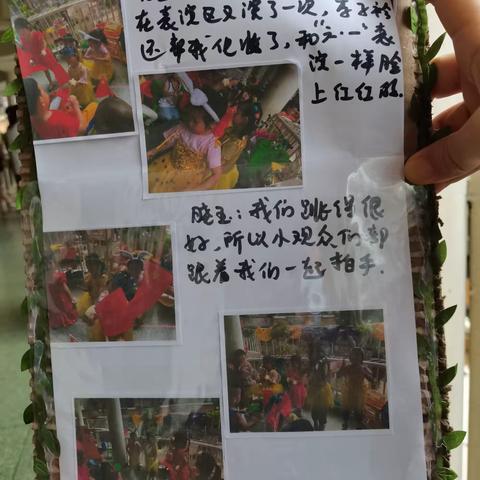 在表演区又演了一次，李子衿
还帮我化妆了，和六一表
演一样脸
上红红的.
晓玉：我们跳得很
好，所以小观众们都
跟着我们一起拍手.